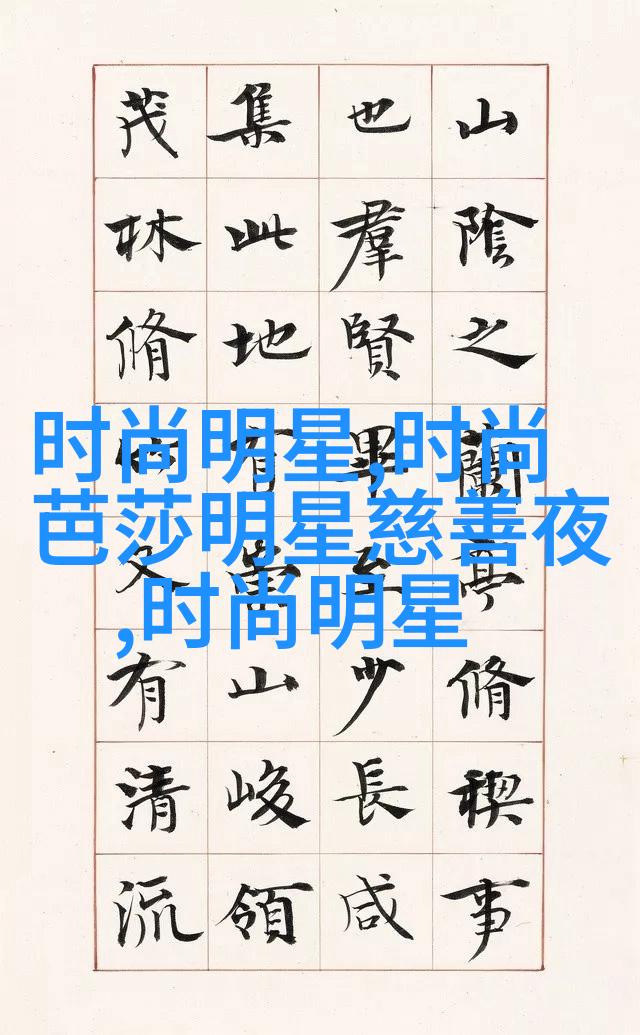 山陰之蘭亭脩稧事
也羣賢畢至少長咸
集此地有崇山峻領
茂林脩竹又有清流
时尚明星,时尚
芭莎明星慈善夜
,时尚明星